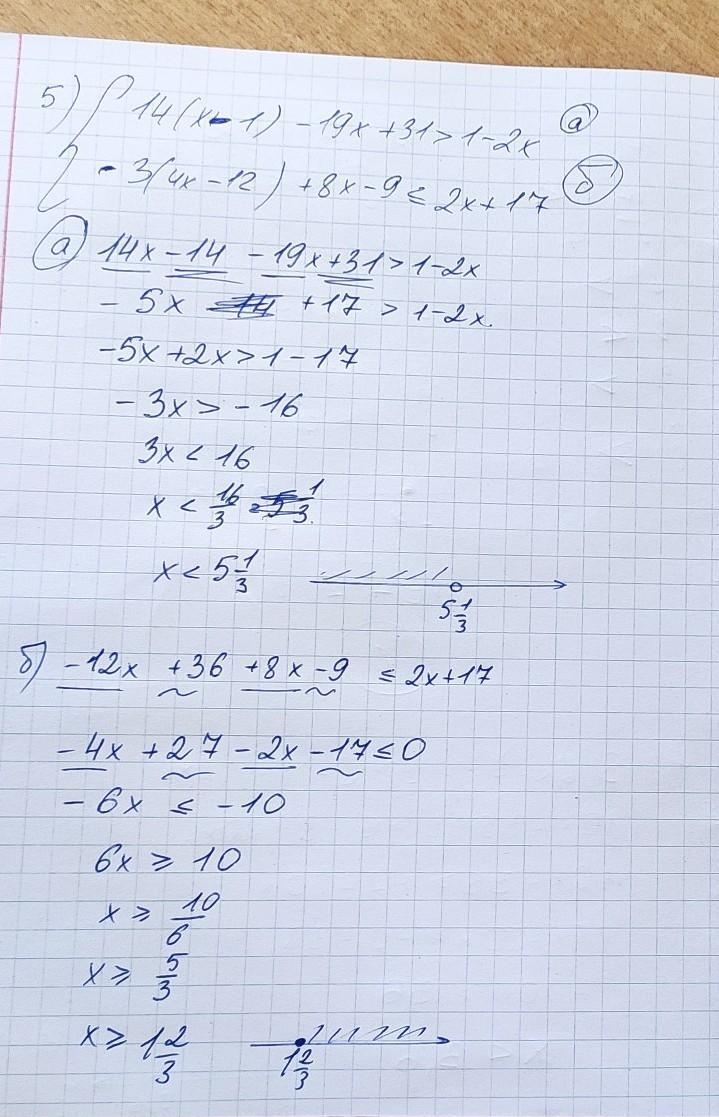 5) { 14(x-1) -19x+31>1-2x (а)
-3(4x-12)+8x-9≤2x+17 (б)
(а) 14x-14-19x+31>1-2x
-5x +17>1-2x.
-5x+2x>1-17
-3x>-16
3x<16
x<16/3
x<5 1/3
5 1/3
б) -12x+36+8x-9≤2x+17
-4x+27-2x-17≤0
-6x≤-10
6x≥10
x≥10/6
x≥5/3
x≥1 2/3
1 2/3